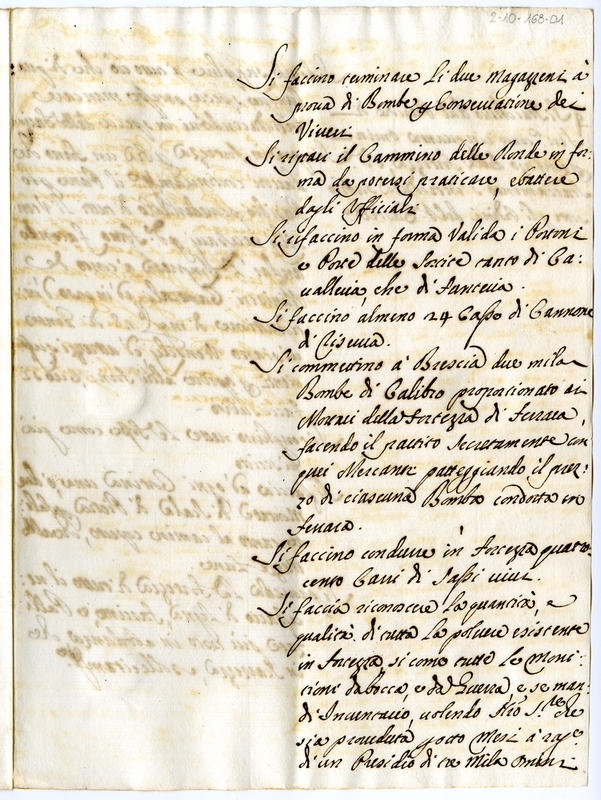 2-10-168-01
Si faccino terminare li due Magazzeni à
prova di Bombe p Conservatione dei
Viveri
Si ripari il Cammino delle Ronde in for:
ma da potersi praticare, e battere
dagli Ufficiali
Si rifaccino in forma valida i Portoni
e Porte delle Sortite tanto di Ca:
valleria, che di fanteria.
Si faccino almeno 24 Casse di Cannone
di Riserva.
Si commettino à Brescia due mila
Bombe di Calibro proporcionato ai
Mortari della Fortezza di Ferrara,
facendo il partito secretamente con
quei Mercanti patteggiando il prez:
zo di ciascuna Bomba condotta in
Ferrara.
Si faccino condurre in Fortezza quattro
cento Carri di Sassi vivi.
Si faccia riconoscere la quantità, e
qualità di tutta la polvere esistente
in Fortezza, si come tutte le Moni:
tioni da bocca, e da Guerra, e se man:
di Inventario, volendo Sre che
sia proveduta p otto Mesi à
di un Presidio di tre Mila Omini